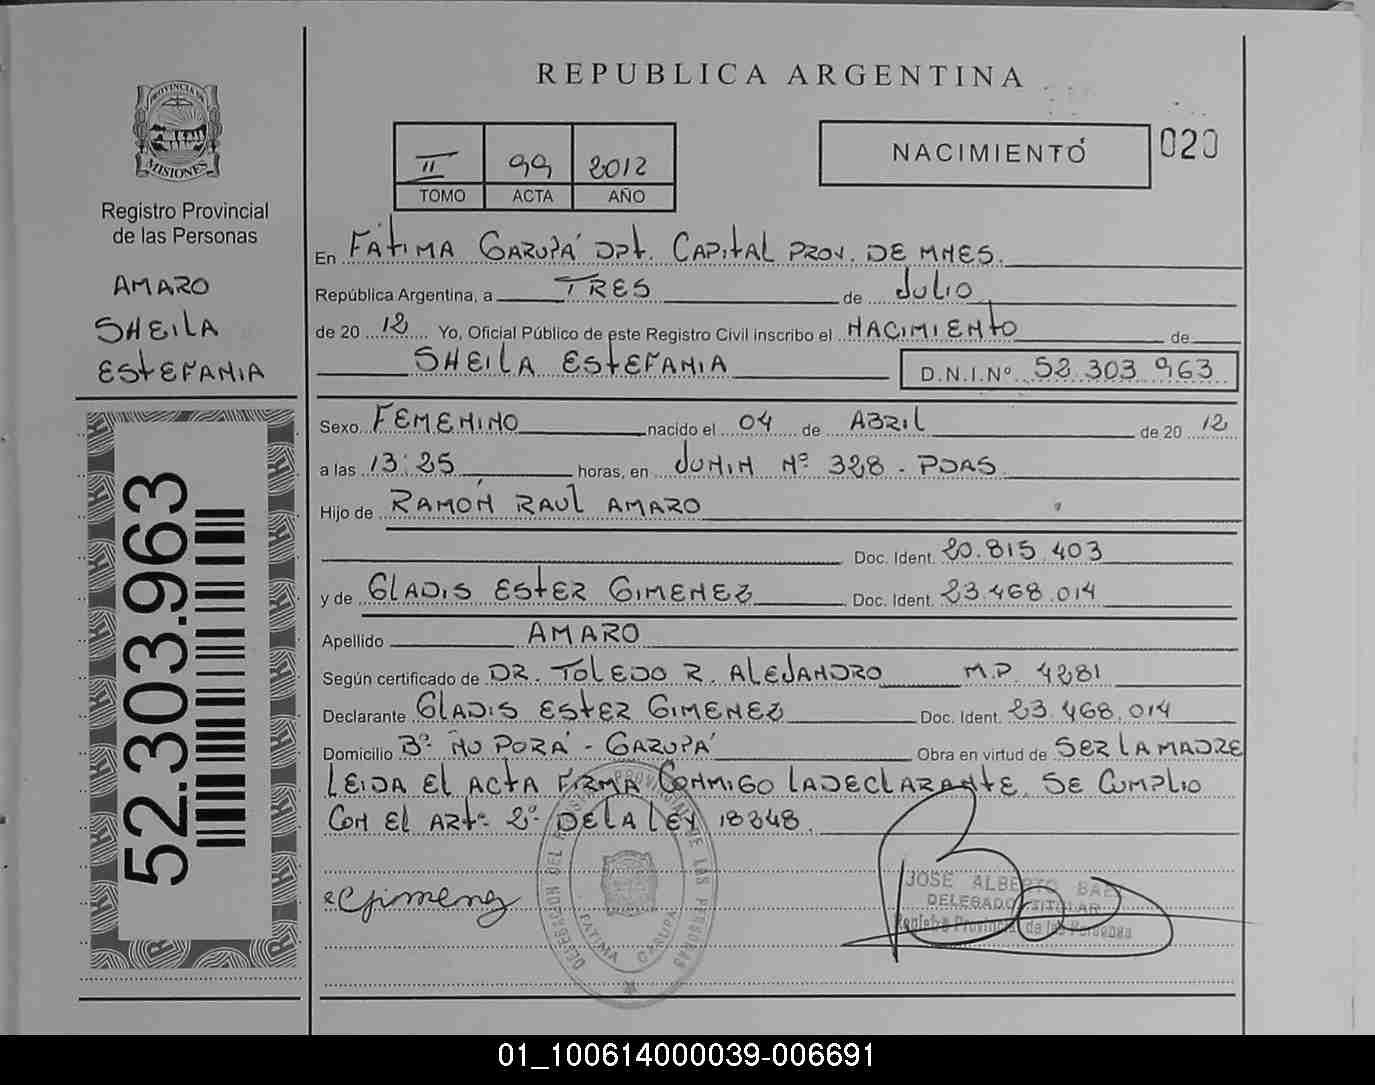 REPUBLICA ARGENTINA
PROVINCIA DE
MISIONES
Registro Provincial
de las Personas
AMARO
SHEILA
ESTEFANIA
52.303.963
II 99 2012
TOMO ACTA AÑO
NACIMIENTO 020
En FÁTIMA GARUPÁ DPT. CAPITAL PROV. DE MNES.
República Argentina, a TRES de JULIO
de 20 12 Yo, Oficial Público de este Registro Civil inscribo el NACIMIENTO de
SHEILA ESTEFANIA D.N.I.Nº 52.303.963
Sexo FEMENINO nacido el 04 de ABRIL de 20 12
a las 13:25 horas, en JUNIN Nº 328 - PDAS.
Hijo de RAMÓN RAUL AMARO
Doc. Ident. 20.815.403
y de GLADIS ESTER GIMENEZ Doc. Ident. 23.468.014
Apellido AMARO
Según certificado de DR. TOLEDO R. ALEJANDRO M.P. 4281
Declarante GLADIS ESTER GIMENEZ Doc. Ident. 23.468.014
Domicilio Bº ÑU PORÁ - GARUPÁ Obra en virtud de SER LA MADRE
LEIDA EL ACTA FIRMA CONMIGO LA DECLARANTE. SE CUMPLIO
CON EL ARTº 2º DE LA LEY 18248.
JOSE ALBERTO BAEZ
DELEGADO TITULAR
Registro Provincial de las Personas
FATIMA GARUPA
01_100614000039-006691